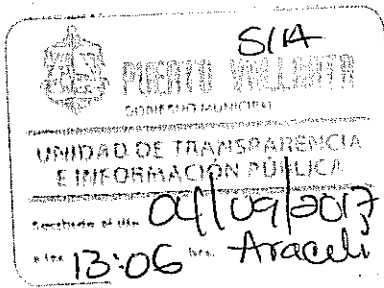 S/A
PUERTO VALLARTA
GOBIERNO MUNICIPAL
UNIDAD DE TRANSPARENCIA
E INFORMACIÓN PÚBLICA
Recibido el día 04/09/2017
a las 13:06 hrs. Araceli